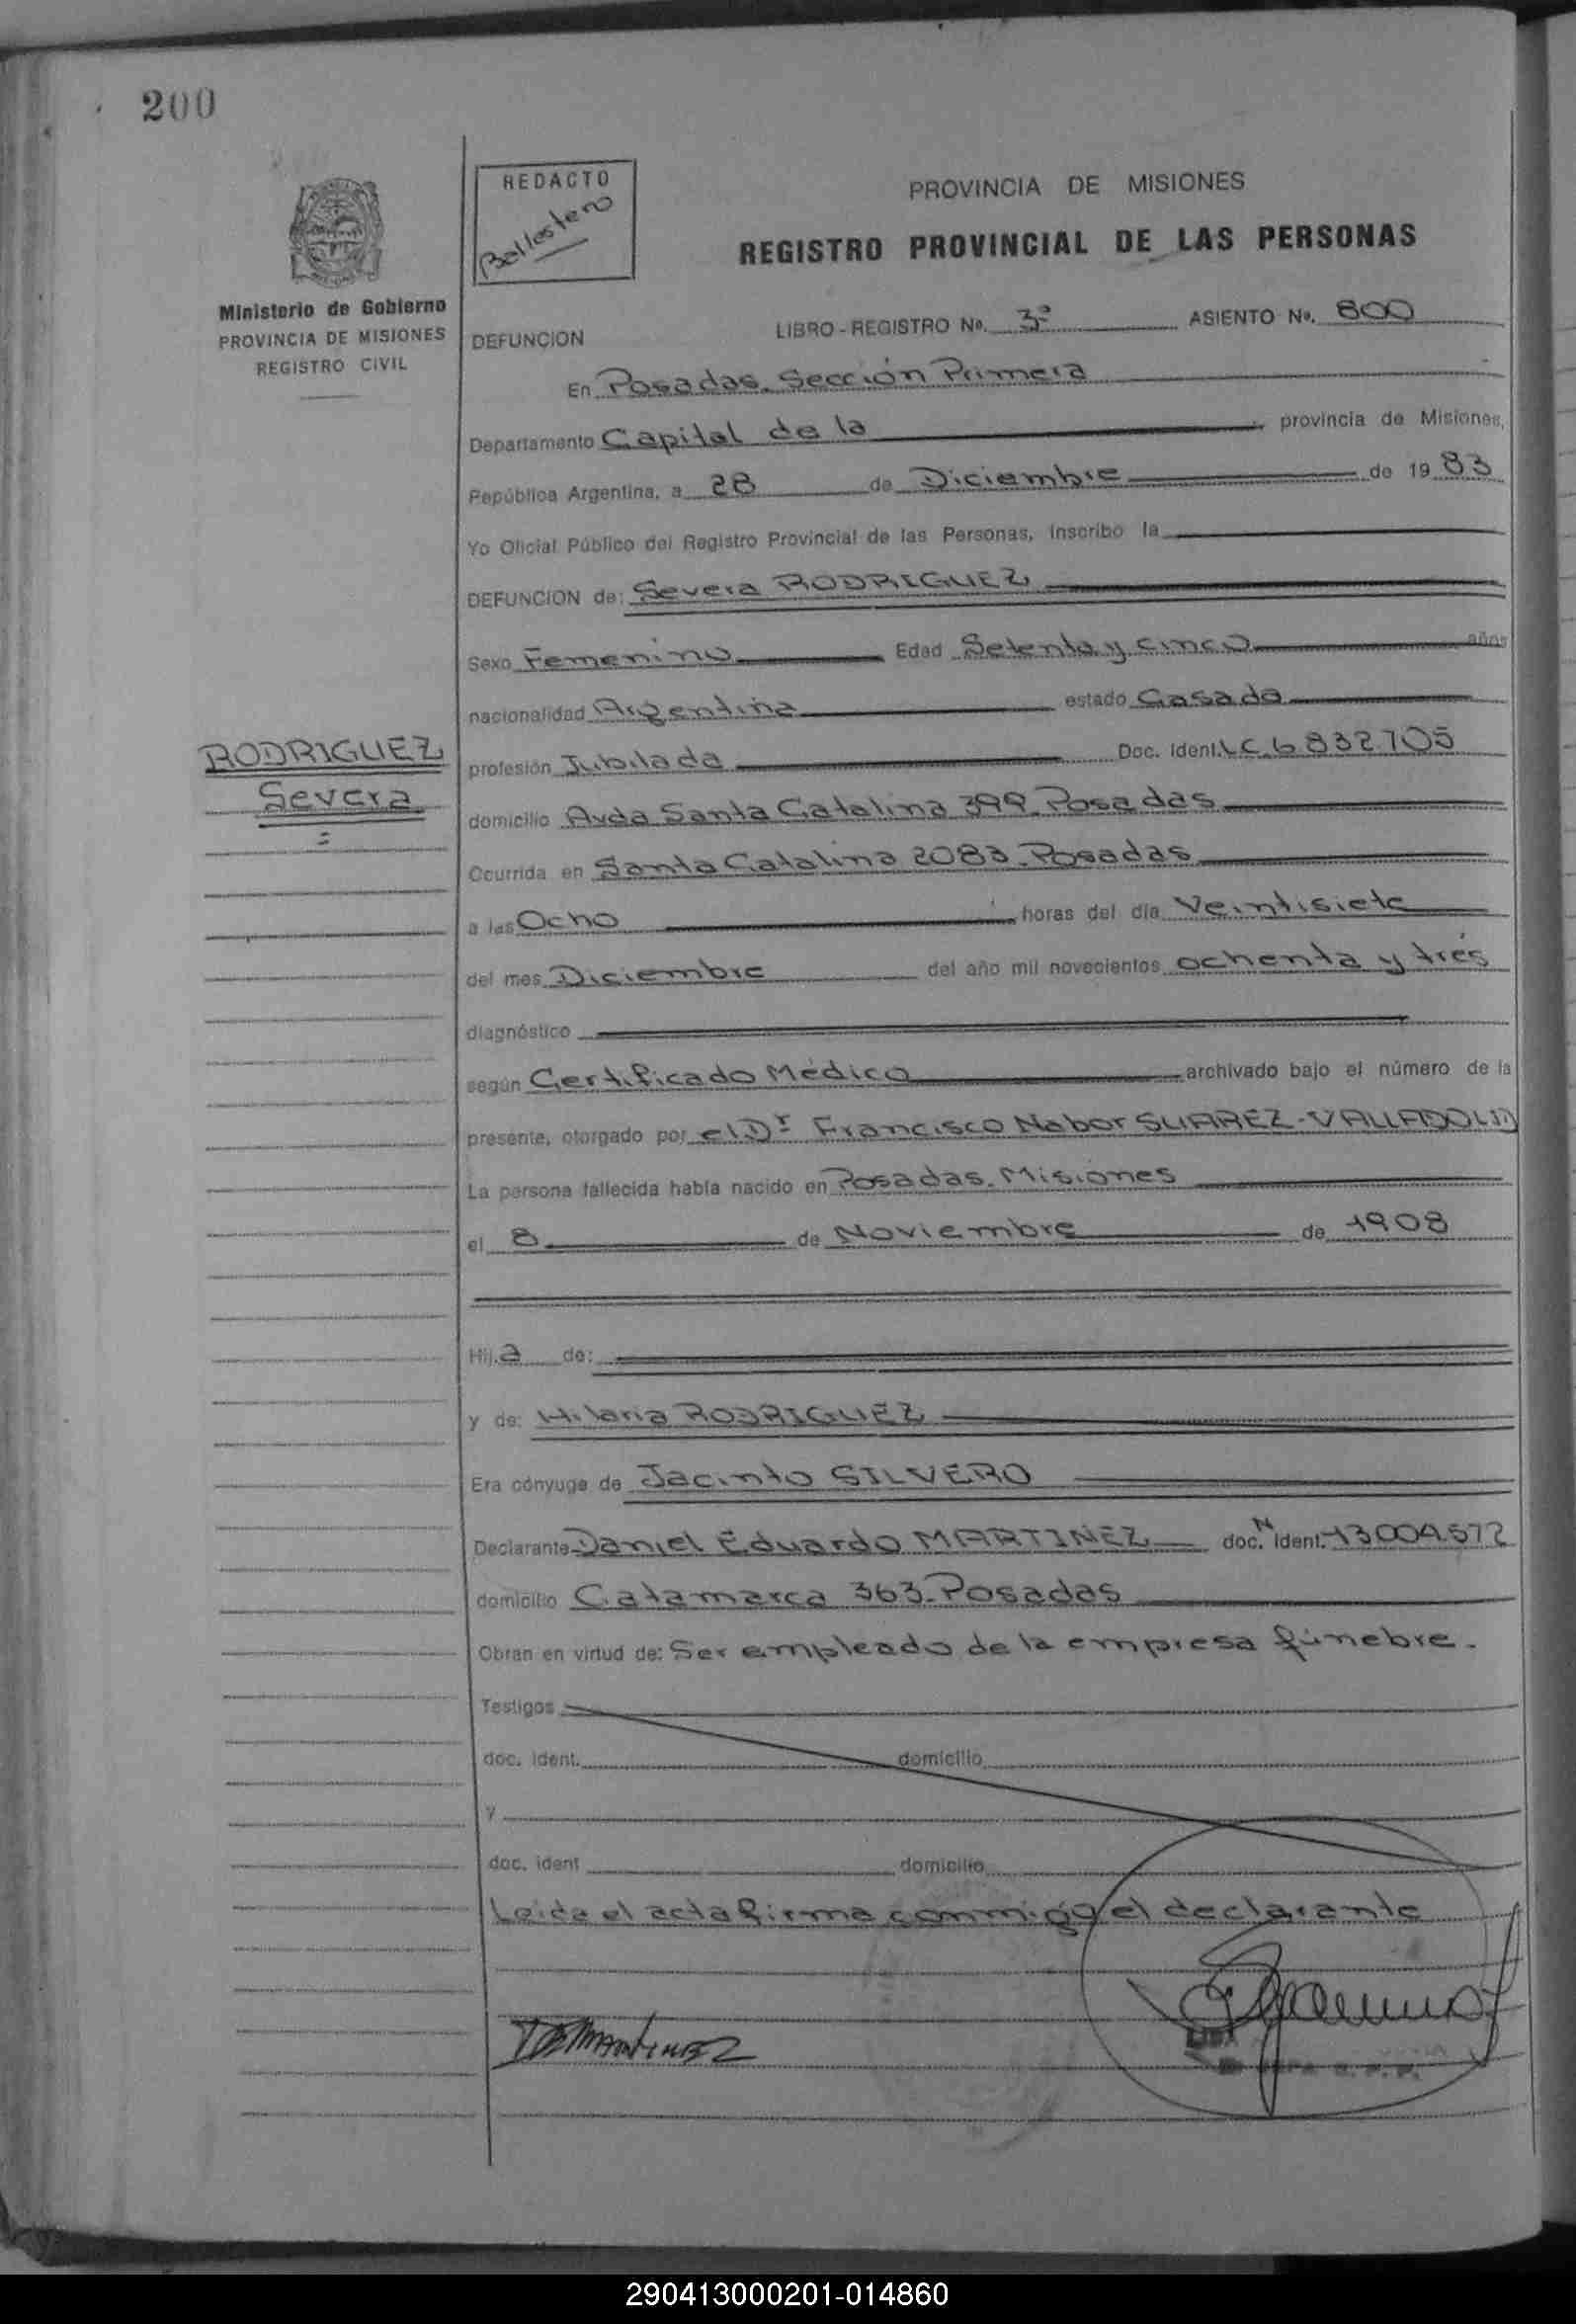 200
REDACTO
Ballestero
PROVINCIA DE MISIONES
REGISTRO PROVINCIAL DE LAS PERSONAS
Ministerio de Gobierno
PROVINCIA DE MISIONES
REGISTRO CIVIL
DEFUNCION LIBRO - REGISTRO No. 3º ASIENTO No. 800
En Posadas. Sección Primera
Departamento Capital de la provincia de Misiones,
Pepública Argentina, a 28 de Diciembre de 1983
Yo Oficial Público del Registro Provincial de las Personas, inscribo la
DEFUNCION de: Severa RODRIGUEZ
Sexo Femenino Edad Setenta y cinco años
nacionalidad Argentina estado Casada
RODRIGUEZ
Severa
profesión Jubilada Doc. Ident. L.C. 6832705
domicilio Avda Santa Catalina 399. Posadas
Ocurrida en Santa Catalina 2083. Posadas
a las Ocho horas del día Veintisiete
del mes Diciembre del año mil novecientos ochenta y tres
diagnóstico
según Certificado Médico archivado bajo el número de la
presente, otorgado por el Dr Francisco Nabor SUAREZ-VALLADOLID
La persona fallecida había nacido en Posadas. Misiones
el 8 de Noviembre de 1908
Hij.a de:
y de: Hilaria RODRIGUEZ
Era cónyuge de Jacinto SILVERO
Declarante Daniel Eduardo MARTINEZ doc. N ident. 13.004.572
domicilio Catamarca 363. Posadas
Obran en virtud de: Ser empleado de la empresa fúnebre.
Testigos
doc. ident. domicilio
y
doc. ident domicilio
Leida el acta firma conmigo el declarante
DEMARTINEZ
290413000201-014860